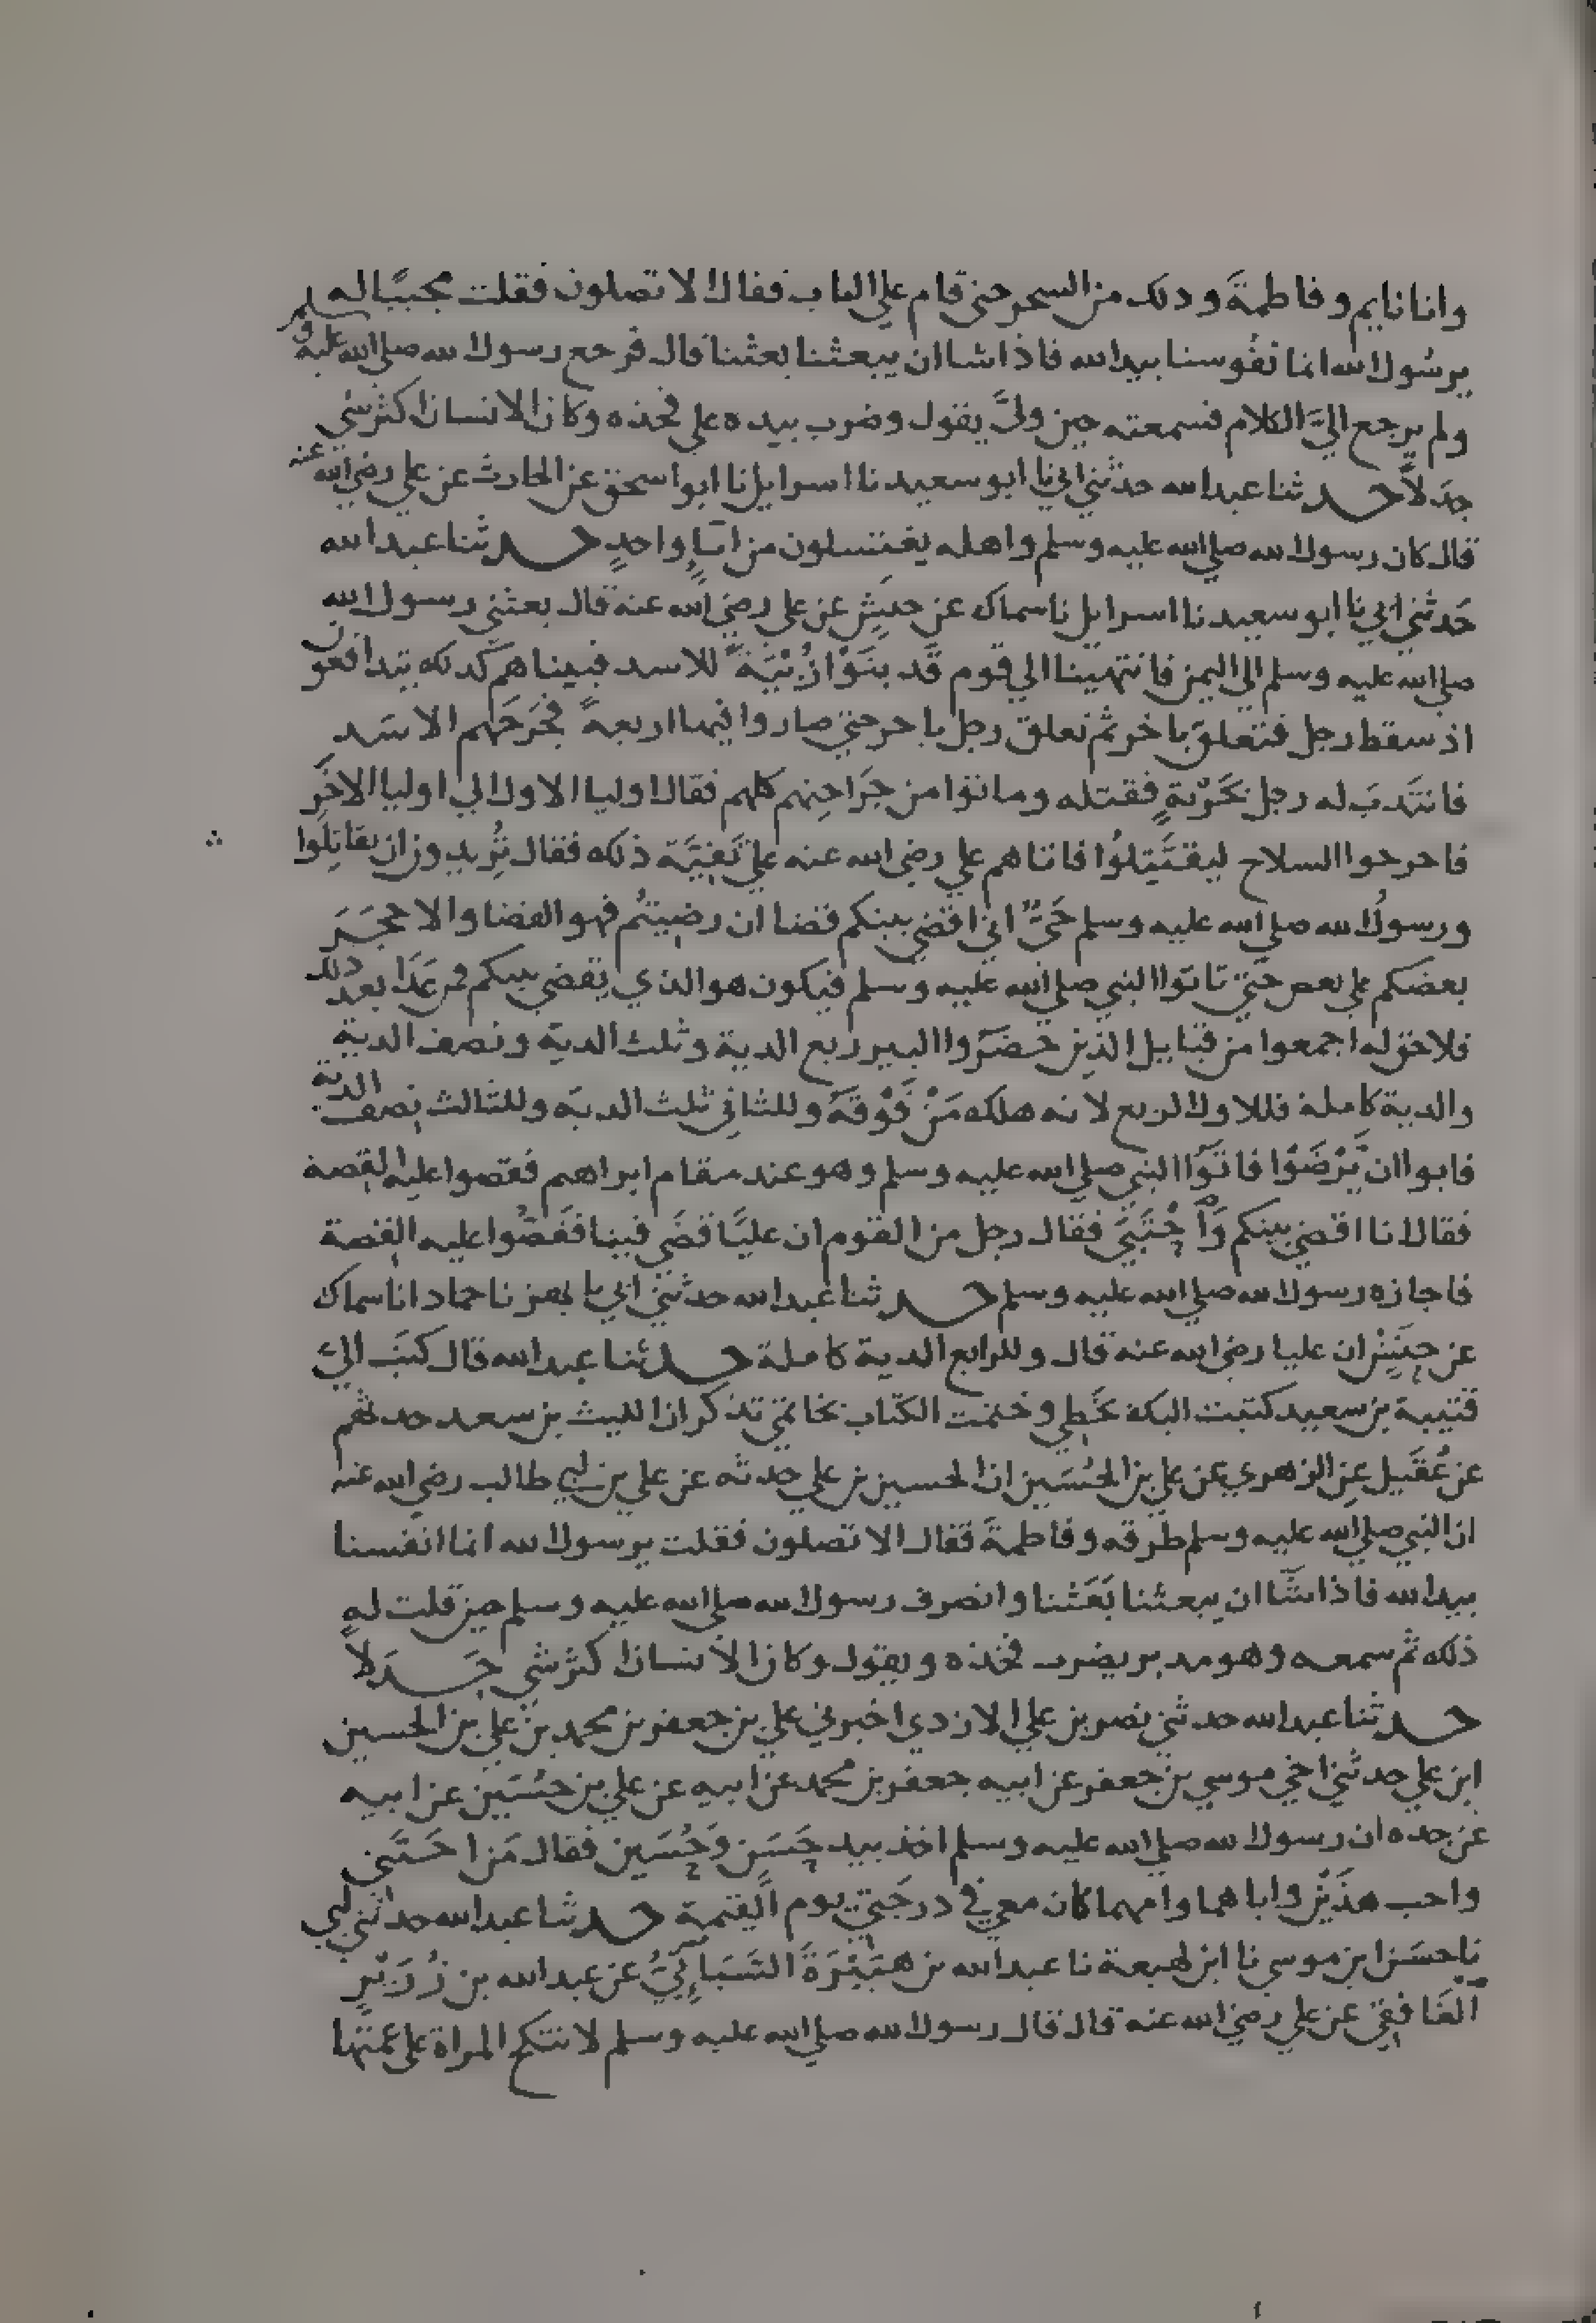 وانا نايم وفاطمة وذلك من السحر حتى قام علي الباب فقال الا تصلون فقلت مجيبا له
يرسول الله انما نفوسنا بيد الله فاذا شا ان يبعثنا بعثنا قال فرجع رسول الله صلي الله عليه وسلم
ولم يرجع اليَّ الكلام فسمعته حين ولَّى يقول وضرب بيده علي فخذه وكان الانسان اكثر شي
جدلاً حدثنا عبد الله حدثني ابي نا ابو سعيد نا اسرايل نا ابو اسحق عن الحارث عن علي رضي الله عنه
قال كان رسول الله صلي الله عليه وسلم واهله يغتسلون من اناٍ واحدٍ حدثنا عبد الله
حَدثني ابي نا ابو سعيد نا اسرايل نا سماك عن حنش عن علي رضي الله عنه قال بعثني رسول الله
صلي الله عليه وسلم الي اليمن فانتهينا الي قوم قَد بنَوْا زُبْيَةً للاسد فبينا هم كذلك يتدافعون
اذ سقط رجل فتعلق باخر ثم تعلق رجل باخر حتي صاروا فيها اربعةً فجَرَحَهم الاسَد
فانتَدبَ له رجل بحَرْبةٍ فقتله وماتوا من جرَاحتهم كلهم فقال اوليا الاول الي اوليا الاخَر
فاخرجوا السلاح ليقتَتِلُوا فاتاهم علي رضي الله عنه علي تَفِيَّة ذلك فقال تُرِيدون ان تقاتِلوا
ورسولُ الله صلي الله عليه وسلم حَيٌّ اني اقضي بينكم قضا ان رضيتُم فهو القضا والا حجَزَ
بعضكم علي بعض حتَّي تاتوا النبي صلي الله عليه وسلم فيكون هو الذي يقضي بينكم فمن عَدَا بعد ذلك
فلا حق له اجمعوا من قبايل الذين حَضَرُوا البير ربع الدية وثلث الدية ونصف الدية
والدية كاملة فللاول الربع لانه هلك مَنْ فَوْقَهُ وللثاني ثلث الدية وللثالث نصف الدية
فابوا ان يَرْضَوْا فاتَوُا النبي صلي الله عليه وسلم وهو عند مقام ابراهيم فقصوا عليه القصة
فقال انا اقضي بينكم وَاحْتَبَيَ فقال رجل من القوم ان عليَّا قضَى فينا فقَصُّوا عليه القصة
فاجازه رسول الله صلي الله عليه وسلم حدثنا عبد الله حدثني ابي نا بهز نا حماد انا سماك
عن حنشٍ ان عليا رضي الله عنه قال وللرابع الدية كاملة حدثنا عبد الله قال كتبَ اليَّ
قتيبة بن سعيد كتبت اليك بخَطي وختمت الكتاب بخاتمي تذكر ان الليث بن سعد حدثهم
عن عُقَيل عن الزهري عن علي بن الحُسَين ان الحسين بن علي حدثه عن علي بن ابي طالب رضي الله عنه
ان النبي صلي الله عليه وسلم طرقه وفاطمةَ فقال الا تصلون فقلت يرسول الله انما انفسنا
بيد الله فاذا شَا ان يبعثنا بَعَثنا وانصرف رسول الله صلي الله عليه وسلم حين قلت له
ذلك ثم سمعه وهو مدبر يضرب فخذه ويقول وكان الانسان اكثر شي جَدَلاً
حدثنا عبد الله حدثني نصر بن علي الازدي اخبرني علي بن جعفر بن محمد بن علي بن الحسين
ابن علي حدثني اخي موسي بن جعفر عن ابيه جعفر بن محمد عن ابيه عن علي بن حُسَين عن ابيه
عن جده ان رسول الله صلي الله عليه وسلم اخذ بيد حَسَن وَحُسَين فقال مَن احَبَّني
واحب هذَيْن واباهما وامهما كان معي في درجَتي يوم القيمة حدثنا عبد الله حدثني ابي
نا حسَن ابن موسي نا ابن لهيعة نا عبد الله بن هبَيْرَةَ السَّبَإِيُّ عن عبد الله بن زُرَيْرٍ
الغَافِقِي عن علي رضي الله عنه قال قال رسول الله صلي الله عليه وسلم لا تنكح المراة علي عمتها